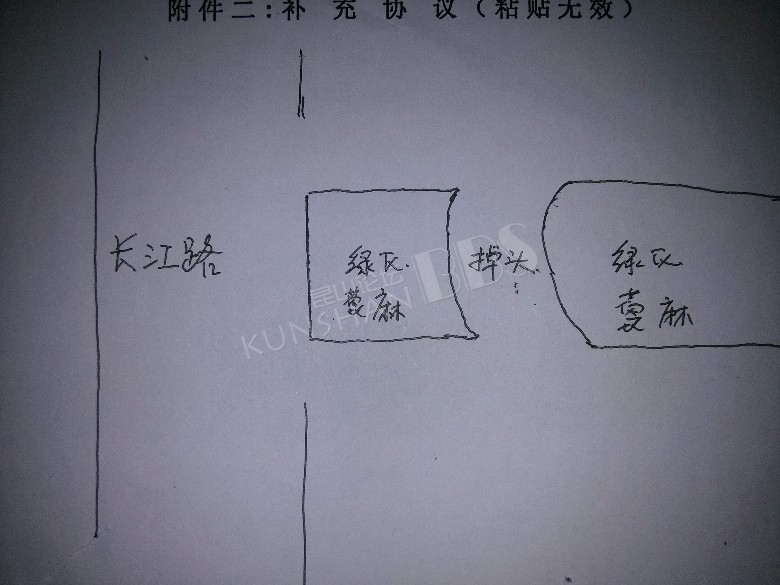 附件二:补充协议(粘贴无效)
长江路
绿灰
蔓麻
掉头
绿灰
蔓麻
昆山论坛
KUNSHAN BBS